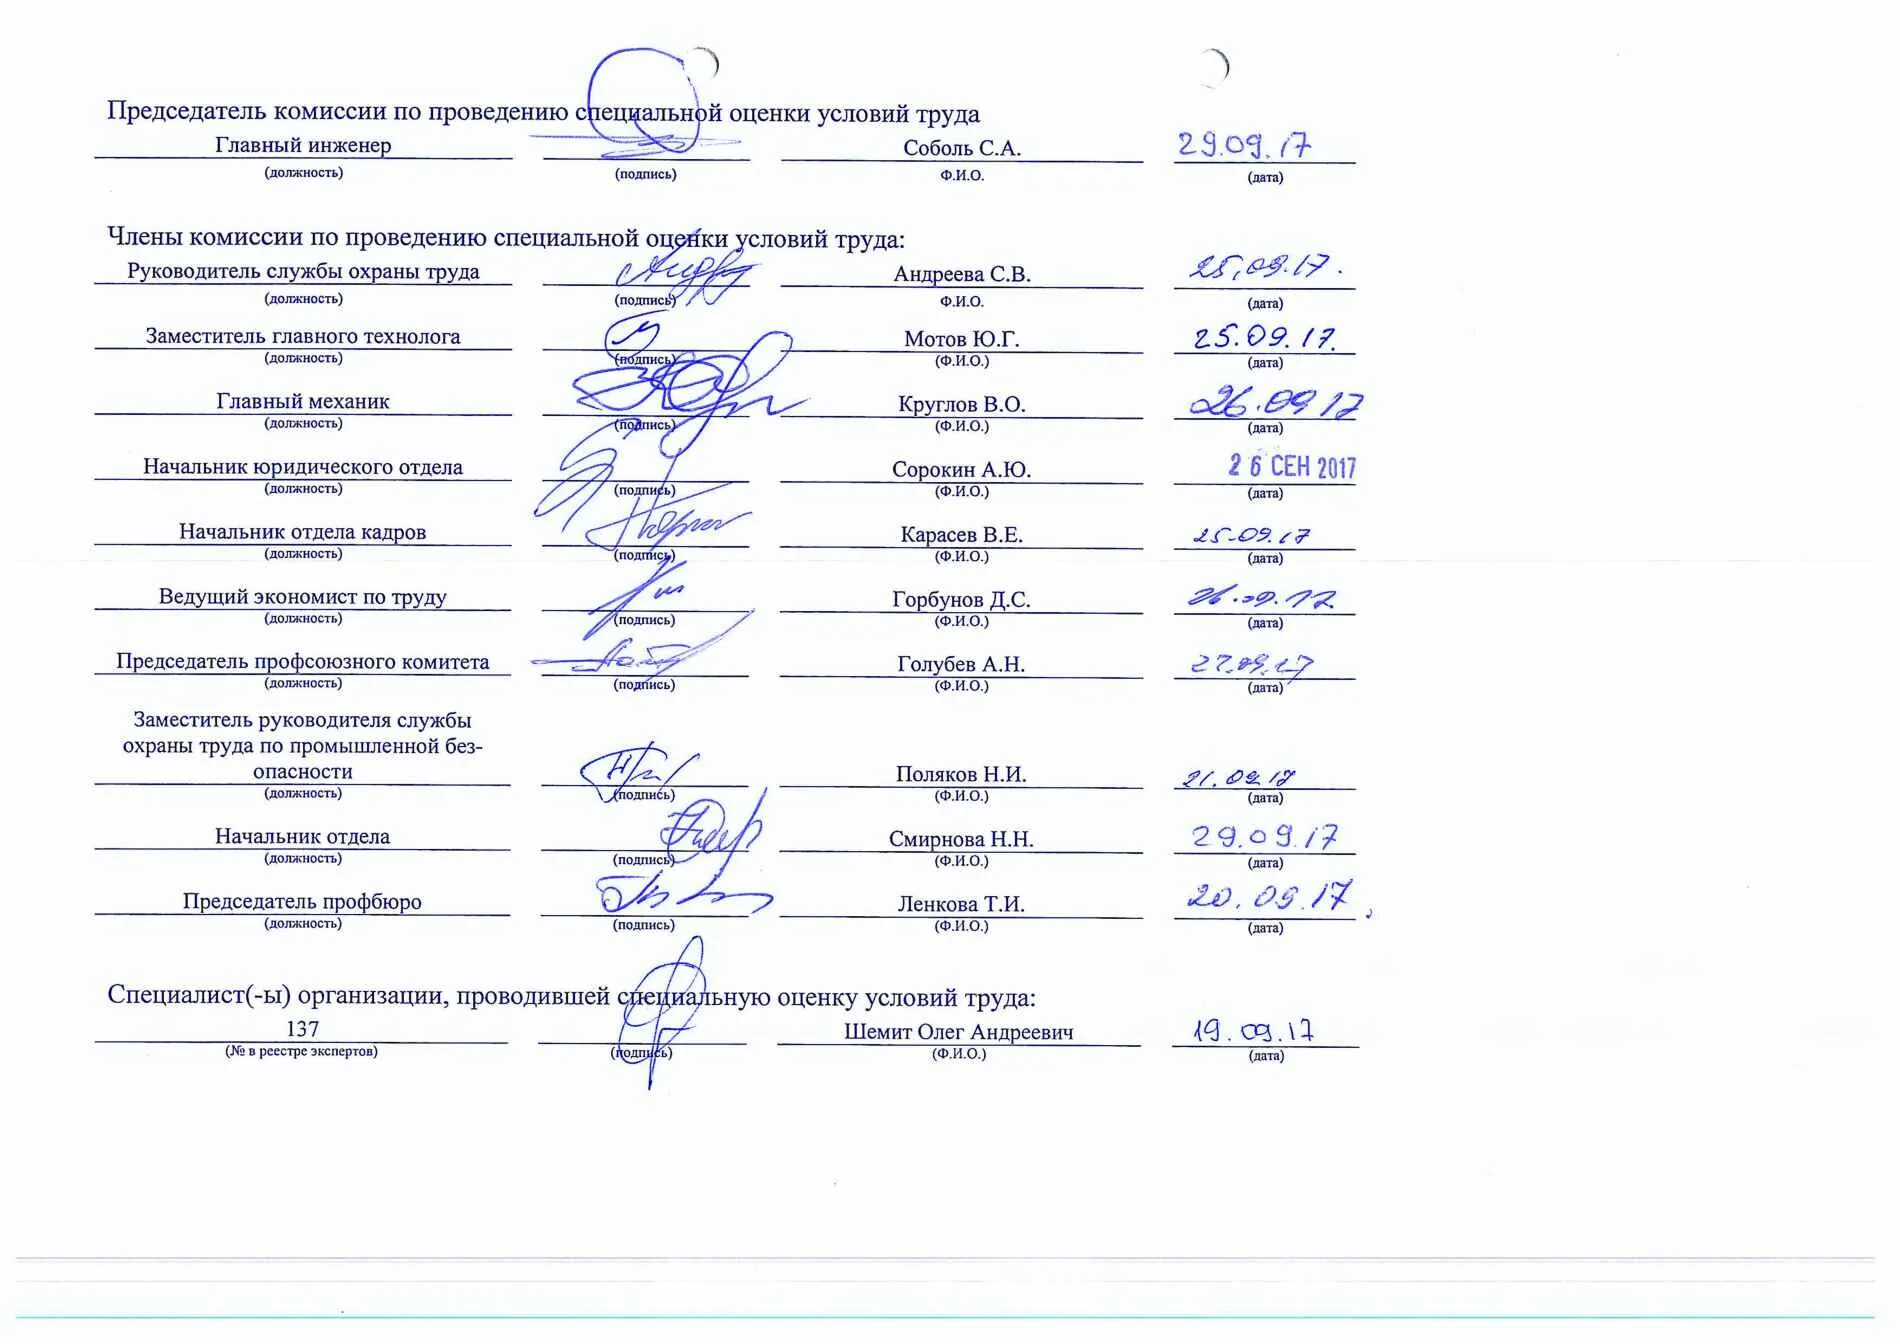 Председатель комиссии по проведению специальной оценки условий труда
Главный инженер Соболь С.А. 29.09.17
(должность) (подпись) Ф.И.О. (дата)
Члены комиссии по проведению специальной оценки условий труда:
Руководитель службы охраны труда Андреева С.В. 25.09.17.
(должность) (подпись) Ф.И.О. (дата)
Заместитель главного технолога Мотов Ю.Г. 25.09.17.
(должность) (подпись) (Ф.И.О.) (дата)
Главный механик Круглов В.О. 26.09 17
(должность) (подпись) (Ф.И.О.) (дата)
Начальник юридического отдела Сорокин А.Ю. 26 СЕН 2017
(должность) (подпись) (Ф.И.О.) (дата)
Начальник отдела кадров Карасев В.Е. 25.09.17
(должность) (подпись) (Ф.И.О.) (дата)
Ведущий экономист по труду Горбунов Д.С. 26.09.17
(должность) (подпись) (Ф.И.О.) (дата)
Председатель профсоюзного комитета Голубев А.Н. 27.09.17
(должность) (подпись) (Ф.И.О.) (дата)
Заместитель руководителя службы
охраны труда по промышленной без-
опасности Поляков Н.И. 21.09.17
(должность) (подпись) (Ф.И.О.) (дата)
Начальник отдела Смирнова Н.Н. 29.09.17
(должность) (подпись) (Ф.И.О.) (дата)
Председатель профбюро Ленкова Т.И. 20.09.17
(должность) (подпись) (Ф.И.О.) (дата)
Специалист(-ы) организации, проводившей специальную оценку условий труда:
137 Шемит Олег Андреевич 19.09.17
(№ в реестре экспертов) (подпись) (Ф.И.О.) (дата)